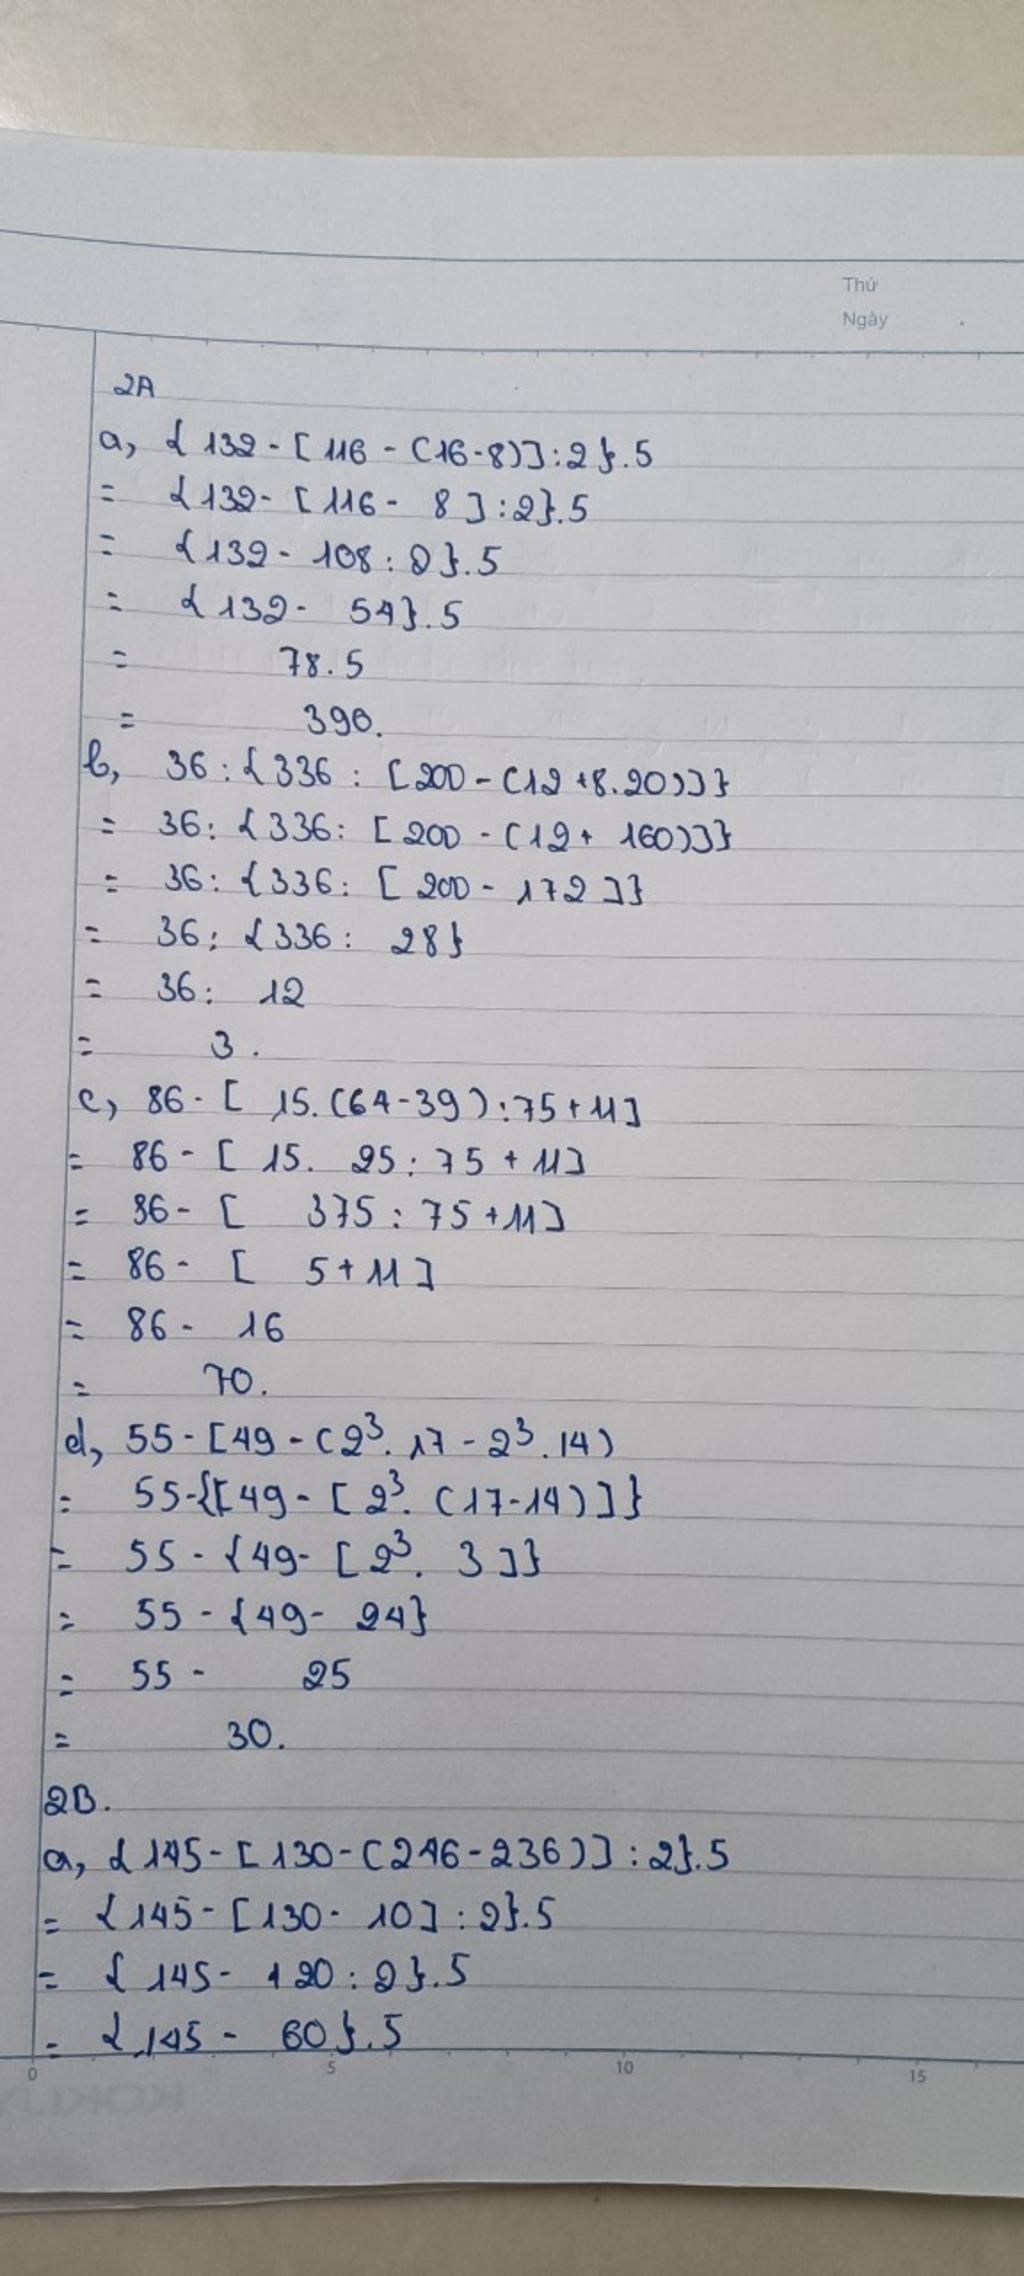 Thứ
Ngày
2A
a, { 132 - [ 116 - (16-8)] : 2 }.5
= {132 - [ 116 - 8 ] : 2}.5
= {132 - 108 : 2 }.5
= {132 - 54 }.5
= 78.5
= 390.
b, 36 : {336 : [200 - (12 + 8.20)]}
= 36: {336: [ 200 - (12 + 160)]}
= 36: {336: [ 200 - 172 ]}
= 36: {336: 28}
= 36: 12
= 3.
c, 86 - [ 15. (64-39) : 75 + 11]
= 86 - [ 15. 25 : 75 + 11]
= 86 - [ 375 : 75 + 11]
= 86 - [ 5 + 11 ]
= 86 - 16
= 70.
d, 55 - [49 - (2³. 17 - 2³. 14)
= 55-{[49 - [ 2³. (17-14) ]}
= 55 - {49- [2³. 3 ]}
= 55 - {49 - 24}
= 55 - 25
= 30.
2B.
a, {145 - [130 - (246 - 236)] : 2}.5
= {145 - [130 - 10] : 2}.5
= { 145 - 120 : 2 }.5
= {145 - 60 }.5
0 5 10 15